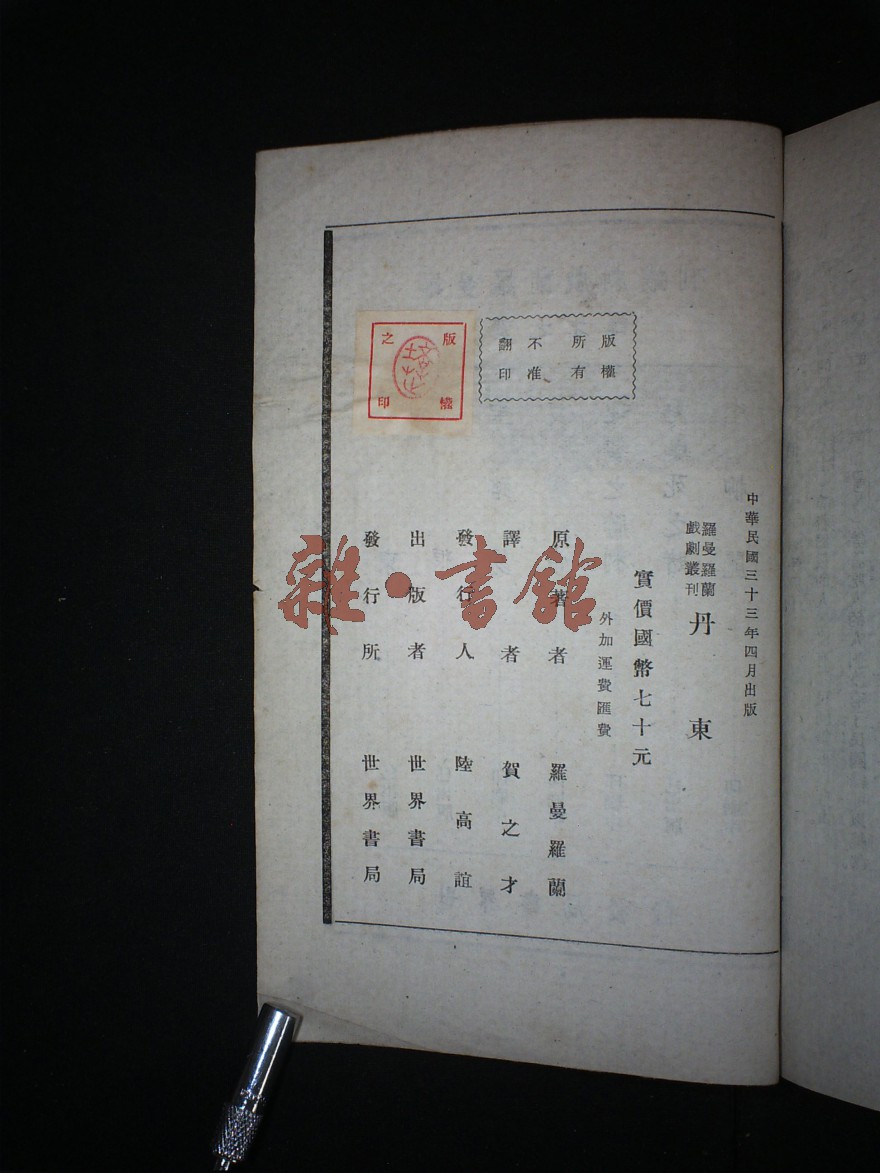 中華民國三十三年四月出版
羅曼羅蘭
戲劇叢刊
丹東
實價國幣七十元
外加運費匯費
原著者 羅曼羅蘭
譯者 賀之才
發行人 陸高誼
出版者 世界書局
發行所 世界書局
版權
所有
不准
翻印
版權
之印
雜·書館